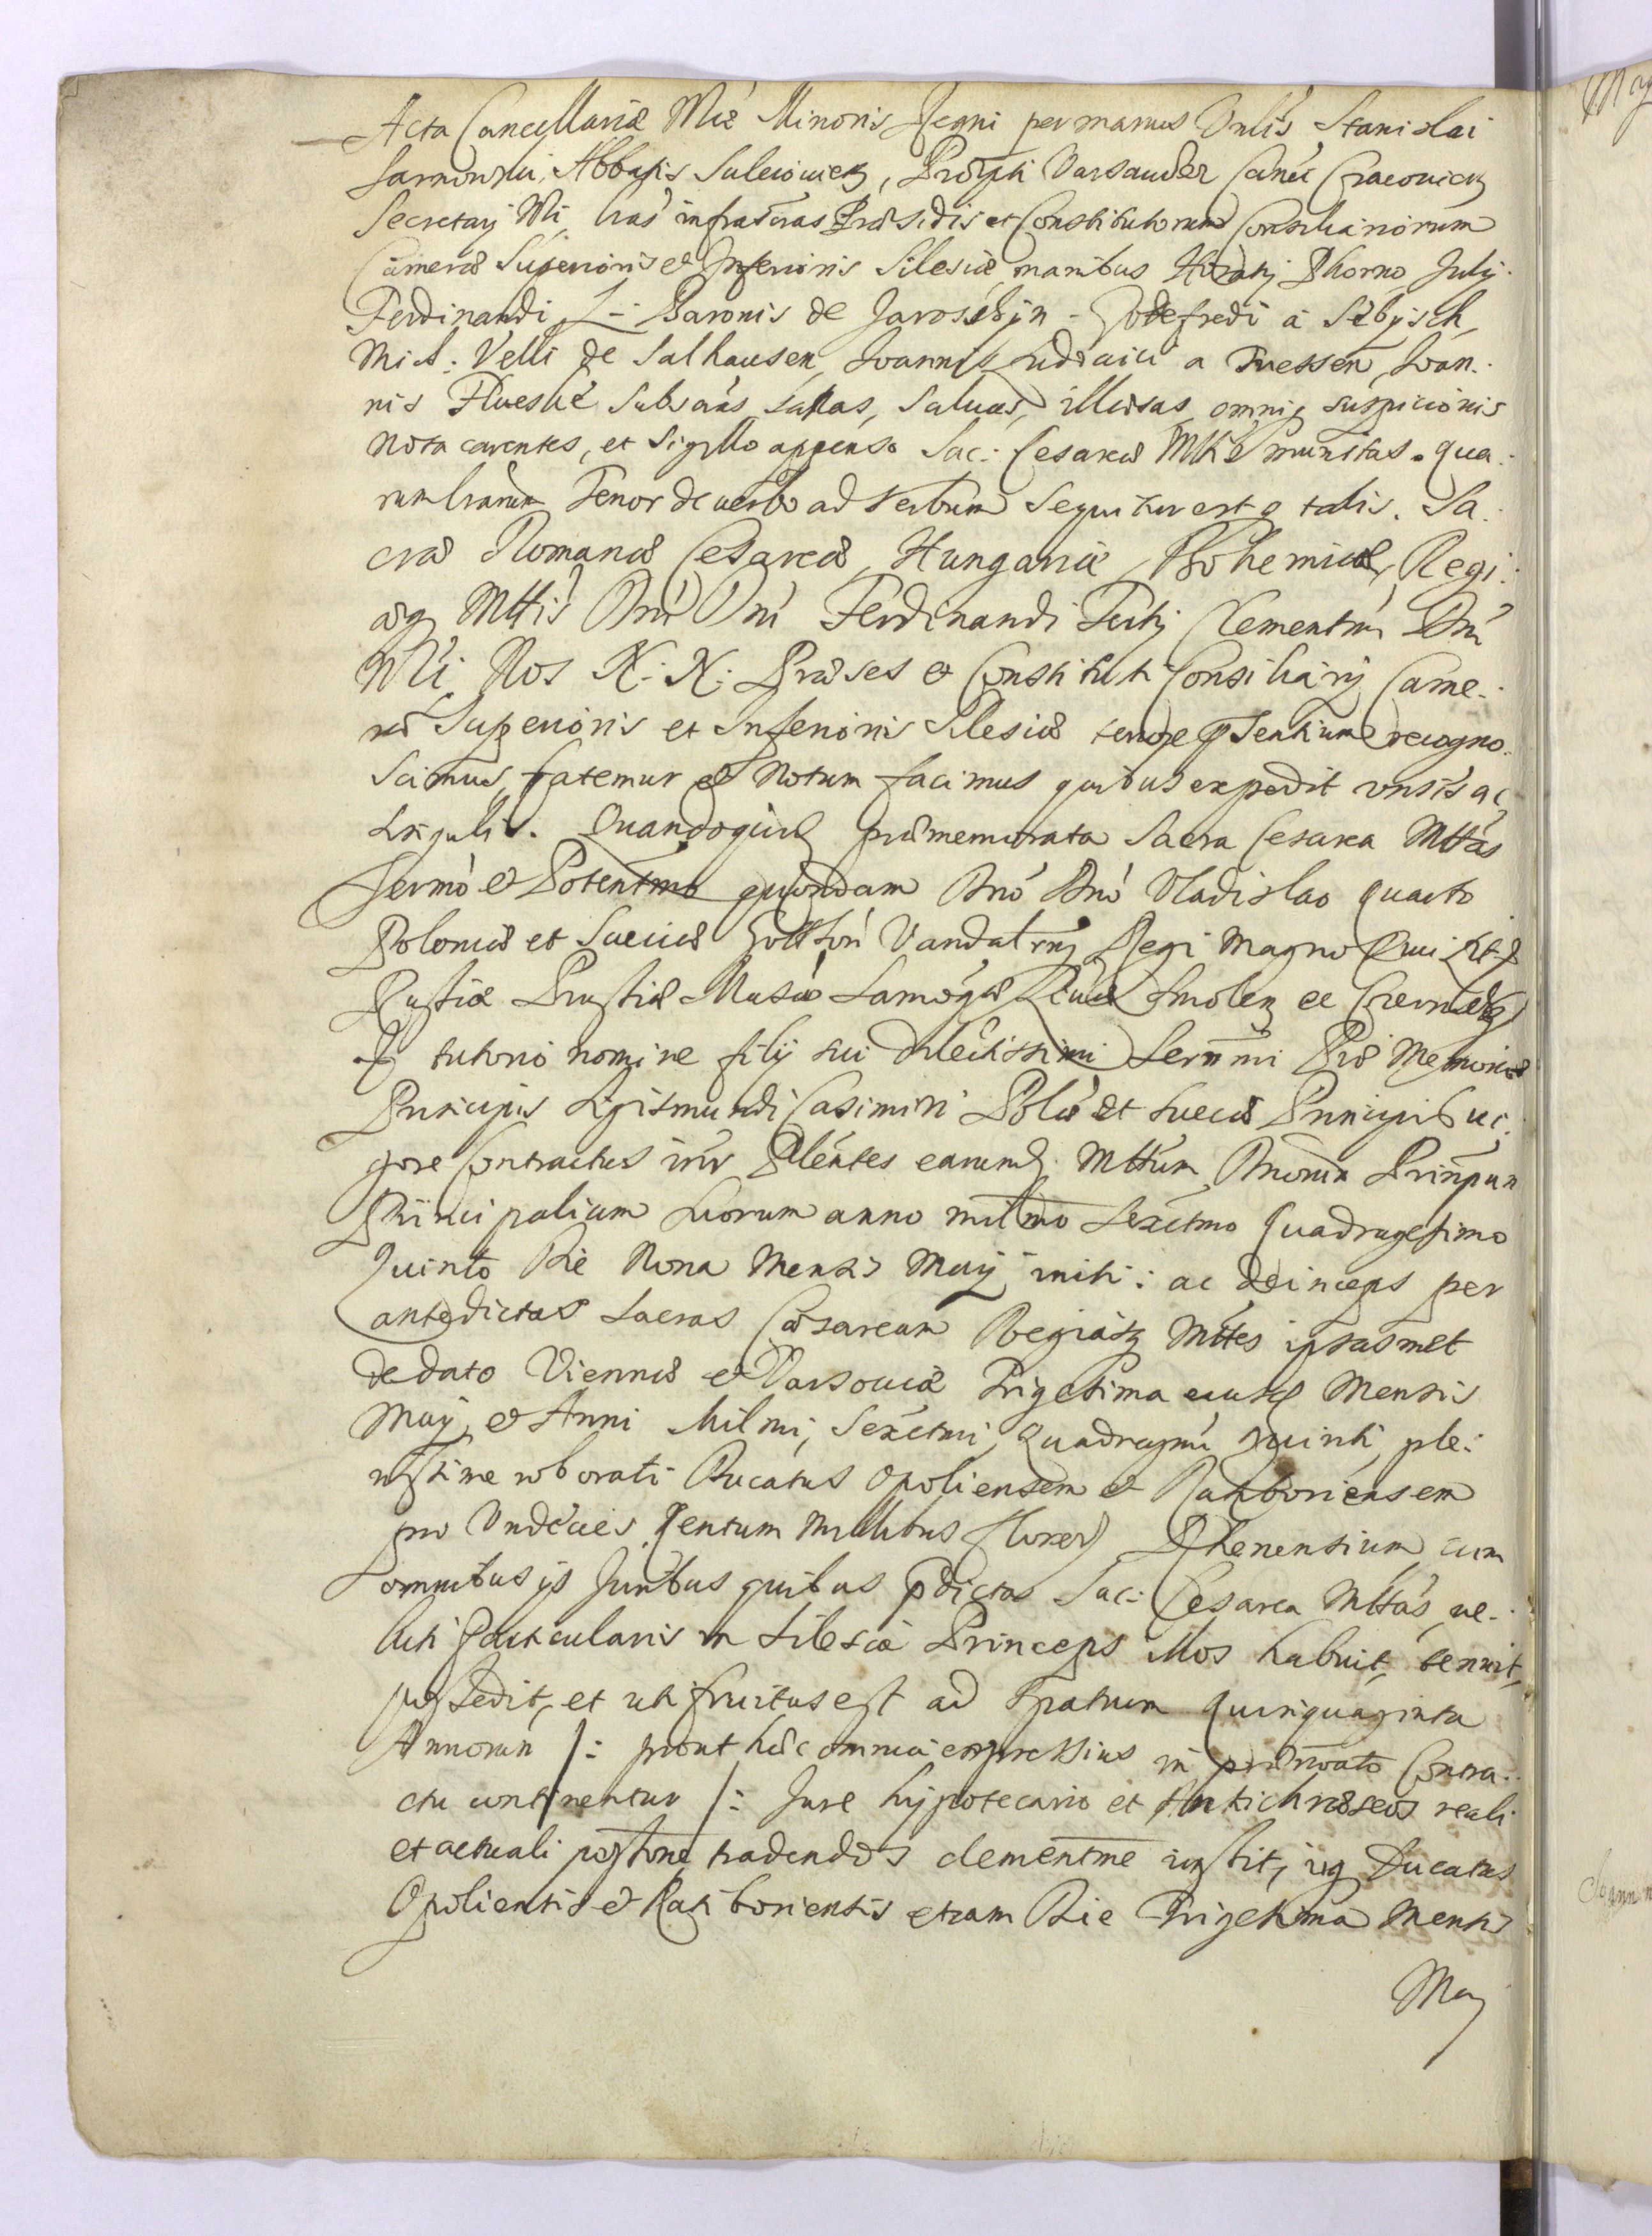 Acta Cancellariæ Mæ Minoris Regni per manus Vnlis Stanislai
Sarnowski, Abbatis Suleiouien, Præpti Varsauien Canci Cracouien
Secretarij Mi, lras infrascras Præsidis et Constitutorum Consiliariorum
Cameræ Superioris et Inferioris Silesiæ manibus Horatij Phorno, Julij
Ferdinandi L: Baronis de Jaroschin - Godefredi à Sebisch,
Mich: Velli de Salhausen, Joannis Ludouici a Tressen, Joan:
nis Flueske subscras, sanas, saluas, illæsas, omniq suspicionis
nota carentes, et Sigillo appenso Sac: Cesareæ Mttis munitas. qua:
rum lrarum Tenor de verbo ad verbum sequitur estq talis. Sa:
cræ Romanæ Cesareæ, Hungariæ, Bohemiæq, Regi:
æq Mttis Dni Dni Ferdinandi Tertij Clementmi Dni
Nri Nos N: N: Præses et Constituti Consiliarij Came:
ræ Superioris et Inferioris Silesiæ tenore pñtium recogno:
scimus, fatemur et Notum facimus quibus expedit vnisis ac
singulis. Quandoquidem præmemorata Sacra Cesarea Mttas
Sermo et Potentmo quondam Dno Dno Vladislao quarto
Poloniæ et Sueciæ Gotthor Vandalorumq Regi Magno Duci Lit
Russiæ Prussiæ Masoæ Samogæ Liuæ Smolen ac Czernieq
tutorio nomine filij sui dilectissimi Serenmi Piæ Memoriæ
Principis Sigismundi Casimiri Polæ et Sueciæ Principis ui:
gore Contractus inter Plentes earumd. Mttum Dnorum Prinpum
Principalium suorum anno millmo Sexctmo Quadragesimo
Quinto Die Nona Mensis Maij initi: ac deinceps per
antedictas Sacras Cæsaream Regiamq Mttes ipsasmet
de dato Viennæ et Varsouiæ Trigesima eiusd Mensis
Maij, et Anni Milmi, Sexctmi, Quadragmi quinti, ple:
nissime roborati Ducatus Opoliensem et Ratiboriensem
pro Vndecies Centum Millibus floren Rhenensium, cum
omnibus ijs Juribus quibus pdictas Sac: Cesarea Mttas, ue:
luti particularis in Silesia Princeps illos habuit, tenuit,
possedit, et uti fruitus est ad Spatium Quinquaginta
Annorum /: prout hæc omnia expressius in prænoato Contra:
ctu continentur /: Jure hypotecario et Antichræseos reali
et actuali possione tradendos clementme iussit, ijq Ducatus
Opoliensis et Ratiboriensis etiam Die Trigesima Mensis
Maij